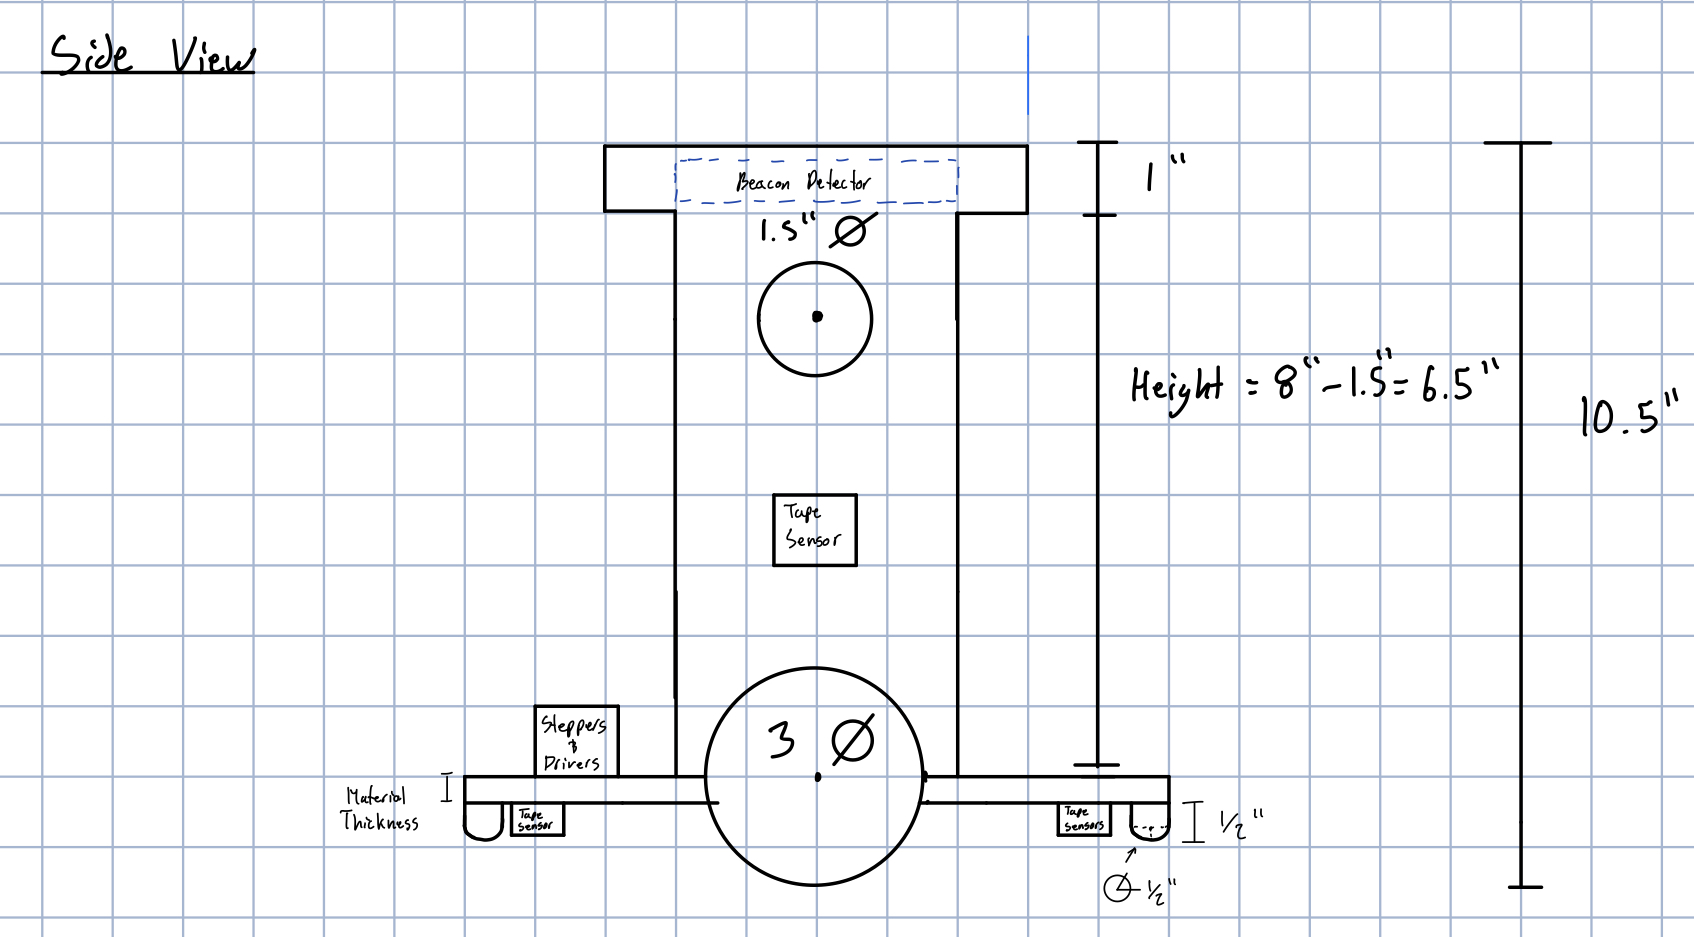 Side View
Beacon Detector
1"
1.5" Ø
Height = 8" - 1.5" = 6.5"
10.5"
Tape
Sensor
Steppers
&
Drivers
3 Ø
Material
Thickness
Tape
Sensor
Tape
Sensors
1/2"
1/2"